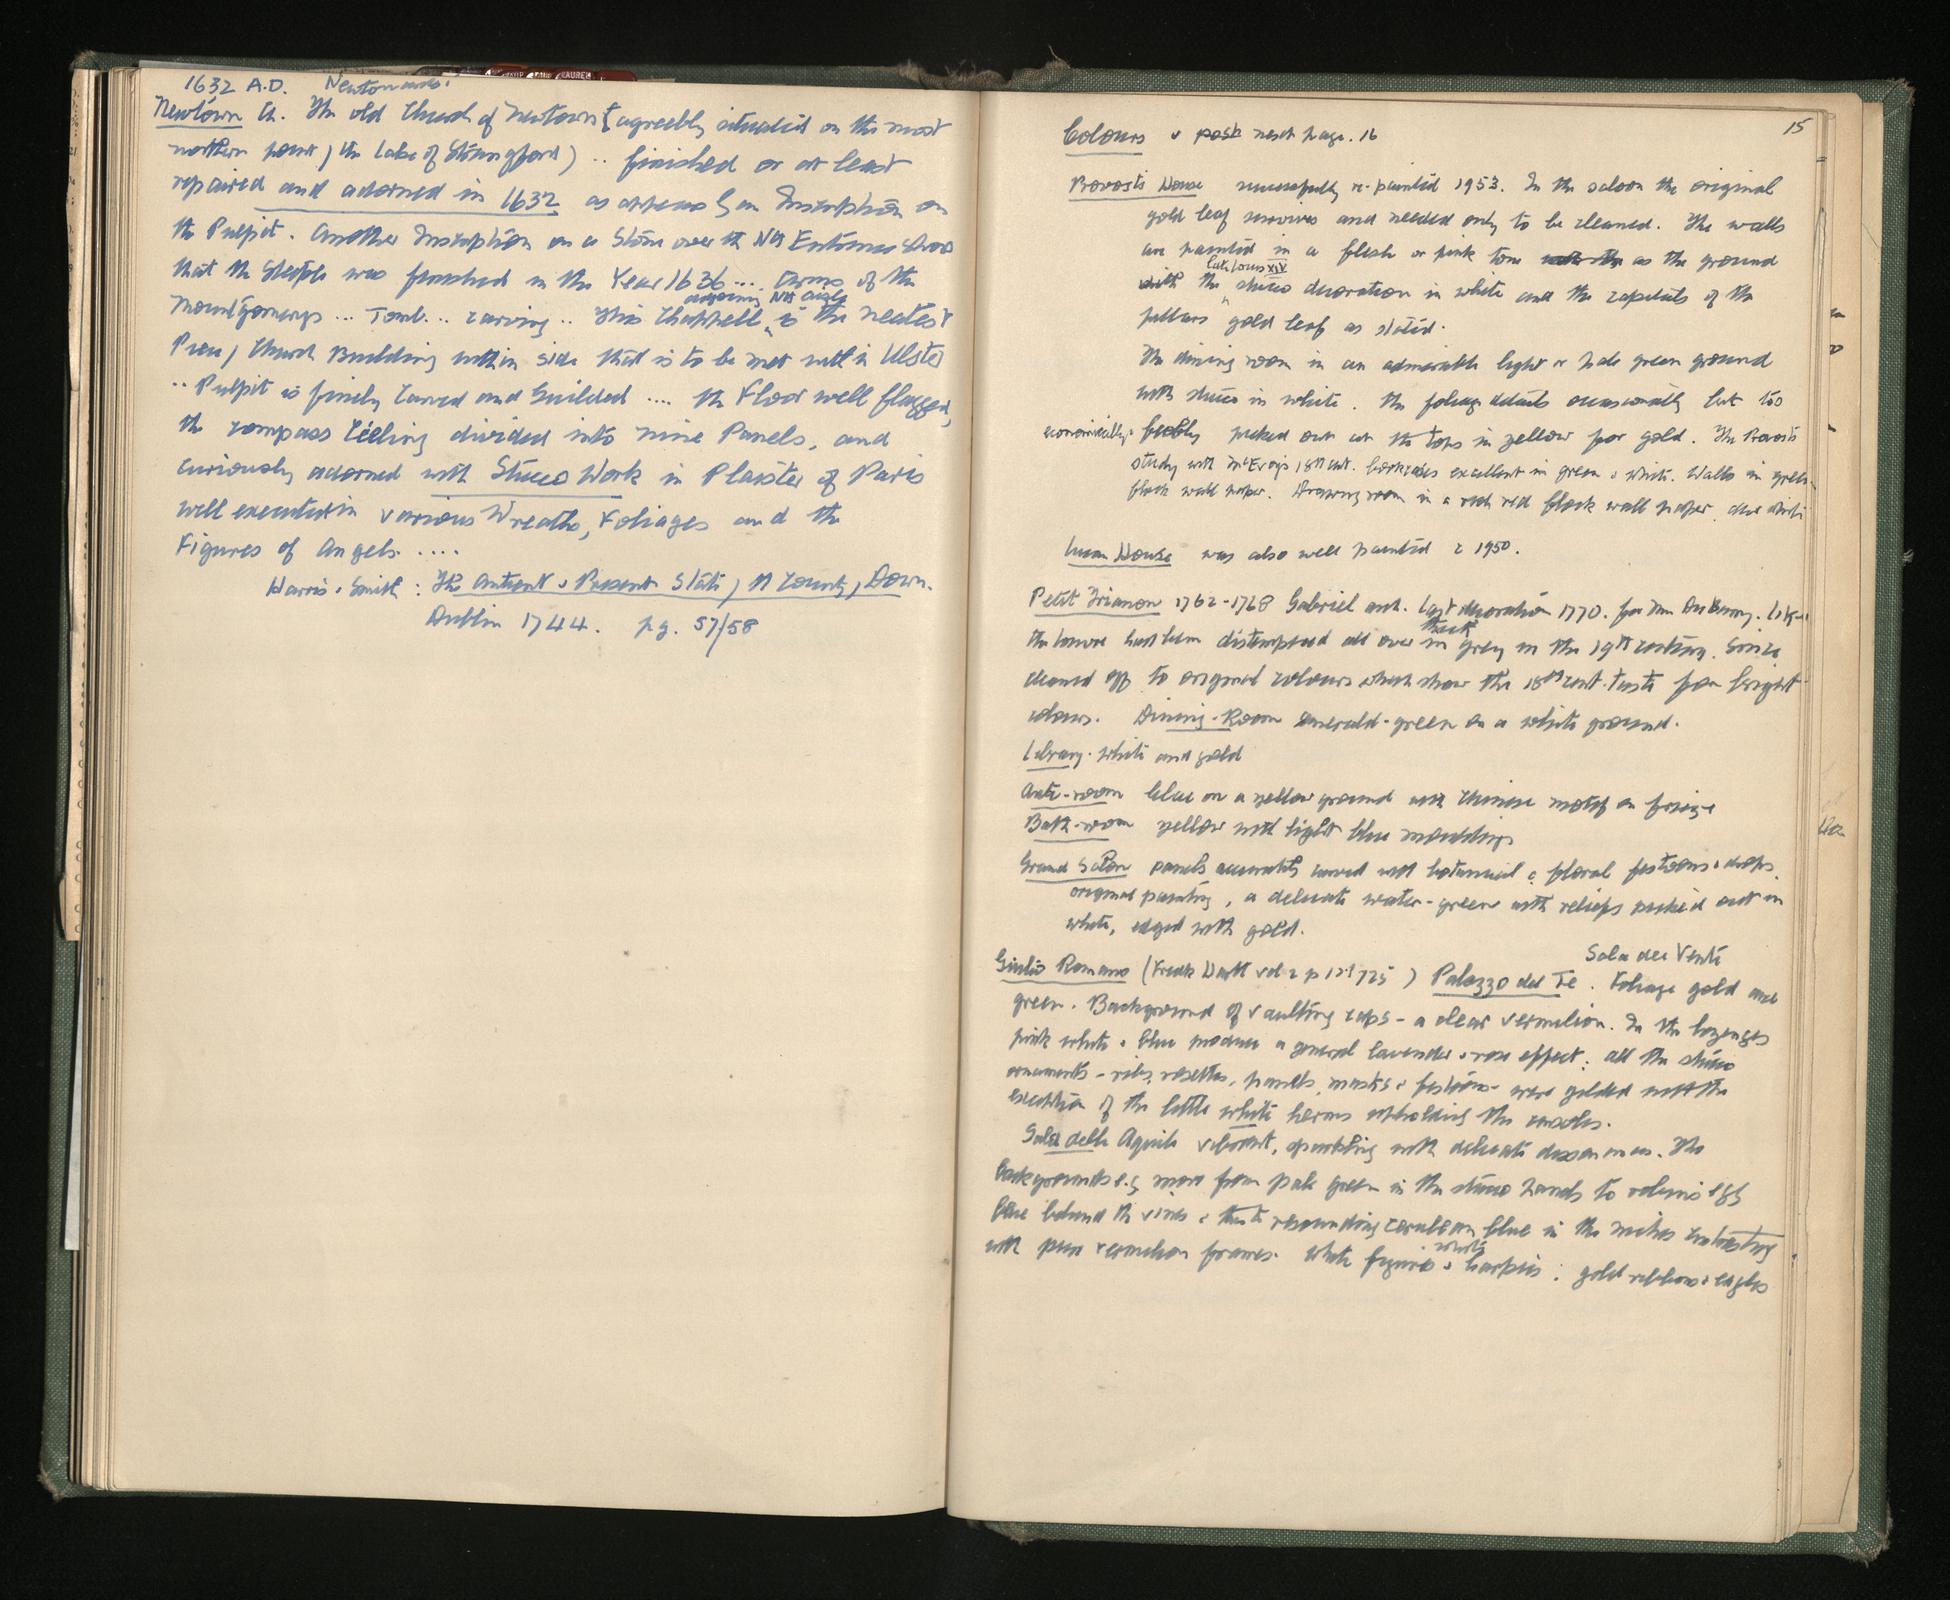 1632 A.D. Newtownards.
Newtown Ch. The old Church of Newtown [agreebly situated on the most
northern point of the Lake of Strangford) .. finished or at least
repaired and adorned in 1632 as appears by an Inscription on
the Pulpit. Another Inscription on a Stone over the Nth Entrance shows
that the Steeple was finished in the Year 1636 .... Arms of the
Montgomerys ... Tomb... carving .. This Chappell adjoining Nth aisle is the neatest
Piece of Church Building within side that is to be met with in Ulster
.. Pulpit is finely Carved and Guilded .... the Floor well flagged,
the compass Ceeling divided into nine Panels, and
curiously adorned with Stucco Work in Plaister of Paris
well executed in various Wreaths, Foliages and the
Figures of Angels. ....
Harris & Smith : The Antient & Present State of the County of Down.
Dublin 1744. pg. 57/58
15
Colours v post next page. 16
Provosts House successfully re-painted 1953. In the saloon the original
gold leaf survives and needed only to be cleaned. The walls
are painted in a flesh or pink tone as the ground
with the Late Louis XIV stucco decoration in white and the capitals of the
pillars gold leaf as stated.
The dining room in an admirable light or pale green ground
with stucco in white. The foliage details occasionally but too
economically feebly picked out at the tops in yellow for gold. The Provosts
study with McEvoy's 18th cent. bookcases excellent in green & white. Walls in green
flock wall paper. Drawing room in a rich red flock wall paper,
Lucan House was also well painted c 1950.
Petit Trianon 1762-1768 Gabriel arch. Last decoration 1770. for Mme Du Barry. Like
the Louvre had been distempered all over in thick grey in the 19th century. Since
cleaned off to original colours which show the 18th cent. taste for bright
colours. Dining-Room Emerald-green on a white ground.
Library. white and gold
Ante-room blue on a yellow ground with Chinese motif on frieze
Bath-room yellow with light blue mouldings
Grand Salon panels accurately carved with botanical & floral festoons & drops.
original painting, a delicate water-green with reliefs picked out in
white, edged with gold.
Sala dei Venti
Giulio Romano (Fredk Hartt vol 2 p ) Palazzo del Te. Foliage gold and
green. Background of vaulting caps - a clear vermilion. In the lozenges
pink white & blue produce a general lavender & rose effect; all the stucco
ornaments - ribs, rosettes, panels, masks & festoons - were gilded with the
exception of the little white herms upholding the
Sala delle Aquile vibrant, sparkling with delicate dissonances. The
backgrounds e.g. move from pale green in the stucco bands to robins egg
blue behind the vines & then to resounding cerulean blue in the niches contrasting
with pure vermilion frames. White figures & white harpies; gold ribbons & eagles